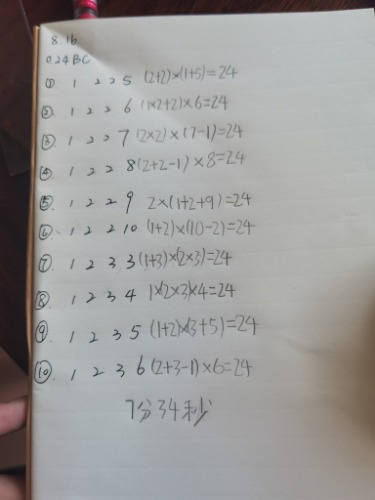 8.16
0.24BC
① 1 2 2 5 (2+2)×(1+5)=24
② 1 2 2 6 (1×2+2)×6=24
③ 1 2 2 7 (2×2)×(7-1)=24
④ 1 2 2 8 (2+2-1)×8=24
⑤ 1 2 2 9 2×(1+2+9)=24
⑥ 1 2 2 10 (1+2)×(10-2)=24
⑦ 1 2 3 3 (1+3)×(2×3)=24
⑧ 1 2 3 4 1×(2×3)×4=24
⑨ 1 2 3 5 (1+2)×(3+5)=24
⑩ 1 2 3 6 (2+3-1)×6=24
7分34秒